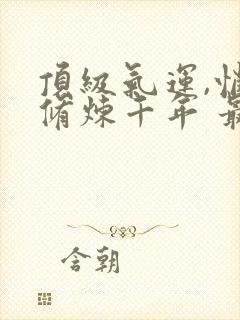 頂級氣運,悄
脩煉千年 最
含朝